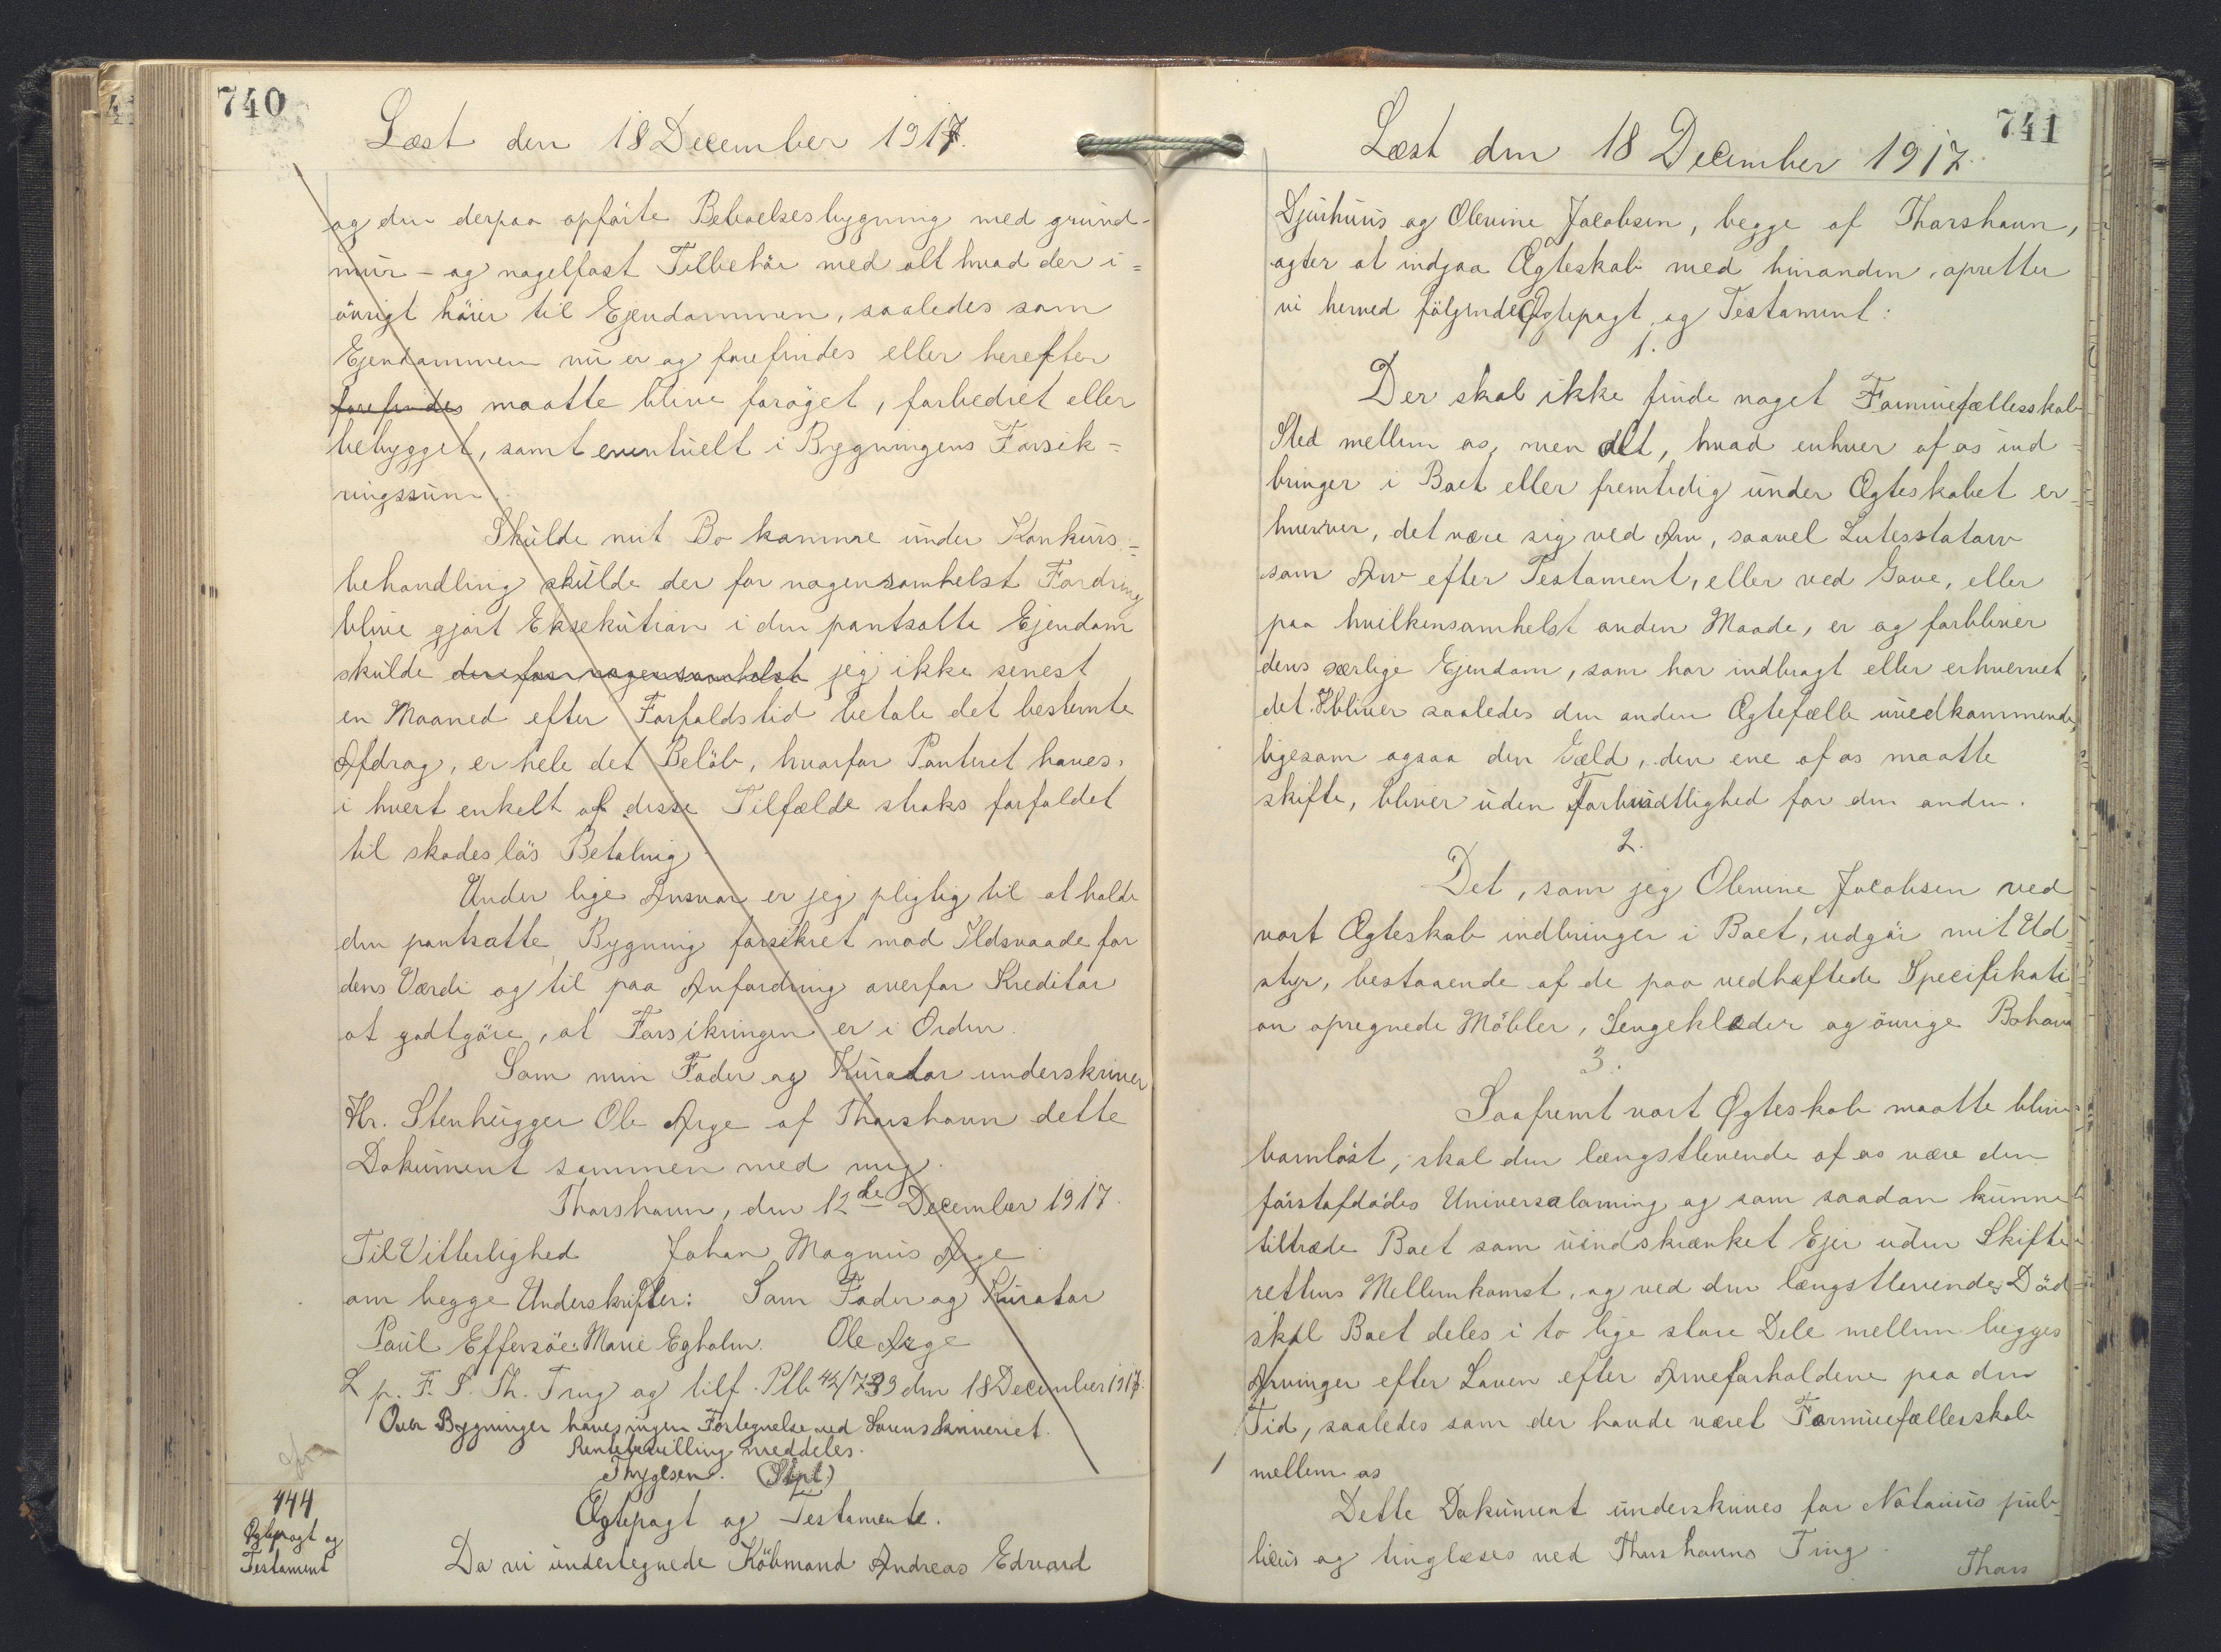 740
Læst den 18 December 1917.
og den derpaa opförte Beboelsesbygning med grund-
mur- og nagelfast Tilbehör med alt hvad der i=
övrigt hörer til Ejendommen, saaledes som
Ejendommen nu er og forefindes eller herefter
forefindes maatte blive foröget, forbedret eller
bebygget, samt eventuelt i Bygningens Forsik=
ringssum.
Skulde mit Bo komme under Konkurs=
behandling skulde der for nogensomhelst Fordring
blive gjort Eksekution i den pantsatte Ejendom
skulde der for nogensomhelst jeg ikke senest
en Maaned efter Forfaldstid betale det bestemte
Afdrag, er hele det Belöb, hvorfor Panteret haves,
i hvert enkelt af disse Tilfælde straks forfaldet
til skadeslös Betaling.
Under lige Ansvar er jeg pligtig til at holde
den pantsatte Bygning forsikret mod Ildsvaade for
dens Værdi og til paa Anfordring overfor Kreditor
at godtgöre, at Forsikringen er i Orden.
Som min Fader og Kurator underskriver
Hr. Stenhugger Ole Arge af Thorshavn dette
Dokument sammen med mig.
Thorshavn, den 12de December 1917.
Til Vitterlighed Johan Magnus Arge
om begge Underskrifter: Som Fader og Kurator
Paul Effersöe. Marie Egholm. Ole Arge
L p. F. S. Th. Ting og tilf. Ptb 4a/739 den 18 December 1917.
Over Bygninger haves ingen Fortegnelse ved Sorenskriveriet.
Rentebevilling meddeles.
Thygesen. (Stpl.)
444
Ægtepagt og
Testament
Ægtepagt og Testamente.
Da vi undertegnede Köbmand Andreas Edvard
741
Læst den 18 December 1917.
Djurhuus og Olevine Jacobsen, begge af Thorshavn,
agter at indgaa Ægteskab med hinanden, opretter
vi herved fölgende Ægtepagt og Testament:
1.
Der skal ikke finde noget Formuefællesskab
Sted mellem os, men alt, hvad enhver af os ind-
bringer i Boet eller fremtidig under Ægteskabet er-
hverver, det være sig ved Arv, saavel Intestatarv
som Arv efter Testament, eller ved Gave, eller
paa hvilkensomhelst anden Maade, er og forbliver
dens særlige Ejendom, som har indbragt eller erhvervet
det. Ibliver saaledes den anden Ægtefælle uvedkommende,
ligesom ogsaa den Gæld, den ene af os maatte
skifte, bliver uden Forbindtlighed for den anden.
2.
Det, som jeg Olevine Jacobsen ved
vort Ægteskab indbringer i Boet, udgör mit Ud-
styr, bestaaende af de paa vedhæftede Specifikati-
on opregnede Möbler, Sengeklæder og övrige Bohave
3.
Saafremt vort Ægteskab maatte blive
barnlöst, skal den længstlevende af os være den
förstafdödes Universalarving og som saadan kunne
tiltræde Boet som uindskrænket Ejer uden Skifte-
rettens Mellemkomst, og ved den længstlevendes Död
skal Boet deles i to lige store Dele mellem begges
Arvinger efter Loven efter Arveforholdene paa den
Tid, saaledes som der havde været Formuefællesskab
mellem os
Dette Dokument underskrives for Notarius pub-
licus og tinglæses ved Thorshavns Ting.
Thors